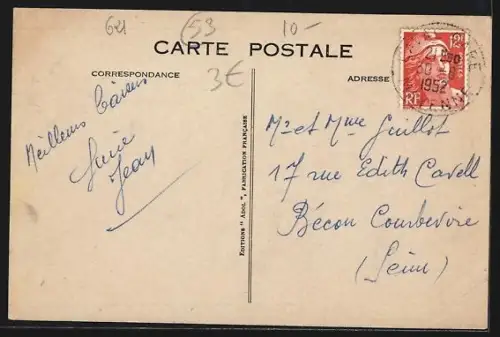 621 (53 10-
CARTE POSTALE
3€
CORRESPONDANCE
ADRESSE
Meilleurs baisers
Jean
EDITIONS "ADOL", FABRICATION FRANÇAISE
12F
RF
1952
Mr et Mme Guillot
17 rue Edith Cavell
Bécon Courbevoie
(Seine)